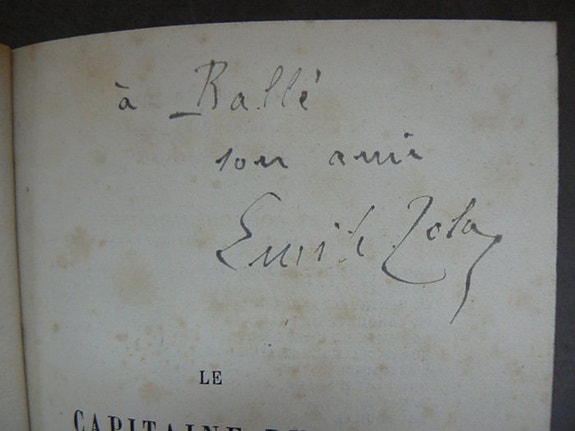 à Ballé
son ami
Emile Zola
LE
CAPITAINE